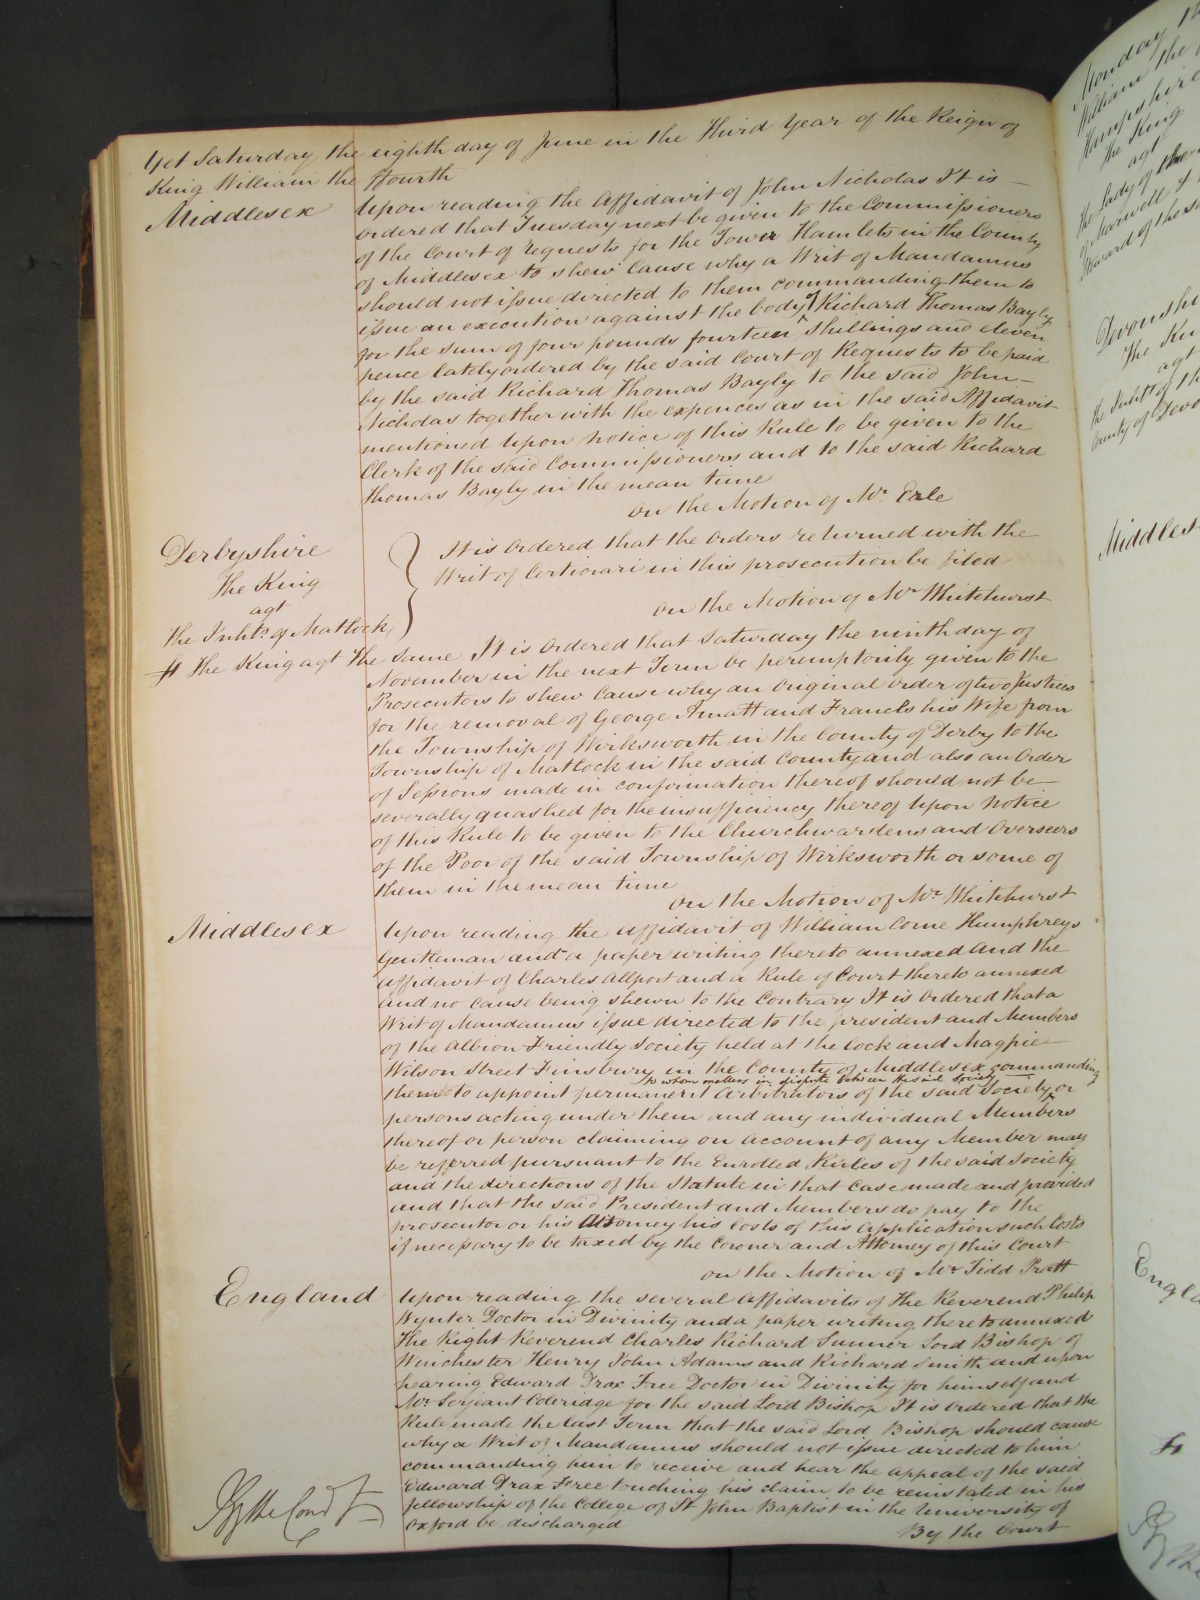 Yet Saturday the eighth day of June in the Third Year of the Reign of
King William the ffourth
Middlesex
Upon reading the Affidavit of John Nicholas It is
ordered that Tuesday next be given to the Commissioners
of the Court of requests for the Tower Hamlets in the County
of Middlesex to shew Cause why a Writ of Mandamus
should not issue directed to them commanding them to
issue an execution against the body of Richard Thomas Bayly
for the sum of four pounds fourteen Shillings and eleven
pence lately ordered by the said Court of Requests to be paid
by the said Richard Thomas Bayly to the said John
Nicholas together with the expences as in the said Affidavit
mentioned Upon notice of this Rule to be given to the
Clerk of the said Commissioners and to the said Richard
Thomas Bayly in the mean time
On the Motion of Mr. Erle
Derbyshire
The King
agt
The Inhts. of Matlock
It is Ordered that the Orders returned with the
Writ of Certiorari in this prosecution be filed
On the Motion of Mr Whitehurst
# The King agt The Same It is Ordered that Saturday the ninth day of
November in the next Term be peremptorily given to the
Prosecutors to shew Cause why an Original Order of two Justices
for the removal of George Amatt and Frances his Wife from
the Township of Wirksworth in the County of Derby to the
Township of Matlock in the said County and also an Order
of Sessions made in confirmation thereof should not be
severally quashed for the insufficiency thereof Upon notice
of this Rule to be given to the Churchwardens and Overseers
of the Poor of the said Township of Wirksworth or some of
them in the mean time
On the Motion of Mr. Whitehurst
Middlesex
Upon reading the affidavit of William Corne Humphreys
Gentleman and a paper writing thereto annexed And the
affidavit of Charles Allport and a Rule of Court thereto annexed
and no cause being shewn to the Contrary It is Ordered that a
Writ of Mandamus issue directed to the president and Members
of the Albion Friendly Society held at the Cock and Magpie
Wilson Street Finsbury in the County of Middlesex commanding
to whom matters in dispute between the said Society
them to appoint permanent Arbitrators of the said Society or
persons acting under them and any individual Members
thereof or person claiming on account of any Member may
be referred pursuant to the Enrolled Rules of the said Society
and the directions of the Statute in that Case made and provided
and that the said President and Members do pay to the
prosecutor or his Attorney his Costs of this application such Costs
if necessary to be taxed by the Coroner and Attorney of this Court
On the Motion of Mr Tidd Pratt
England
Upon reading the several Affidavits of The Reverend Philip
Wynter Doctor in Divinity and a paper writing thereto annexed
The Right Reverend Charles Richard Sumner Lord Bishop of
Winchester Henry John Adams and Richard Smith and upon
hearing Edward Drax Free Doctor in Divinity for himself and
Mr Serjeant Coleridge for the said Lord Bishop It is Ordered that the
Rule made the last Term that the said Lord Bishop should cause
why a Writ of Mandamus should not issue directed to him
commanding him to receive and hear the appeal of the said
Edward Drax Free touching his claim to be reinstated in his
fellowship of the College of St John Baptist in the University of
Oxford be discharged
By the Court
By the Court
Monday
William the
Hampshire
The King
agt
the Lady of the
of Marwell
Steward of the
Devonshi
The Ki
agt
the Inhts of th
County of Devo
Middles
Engla